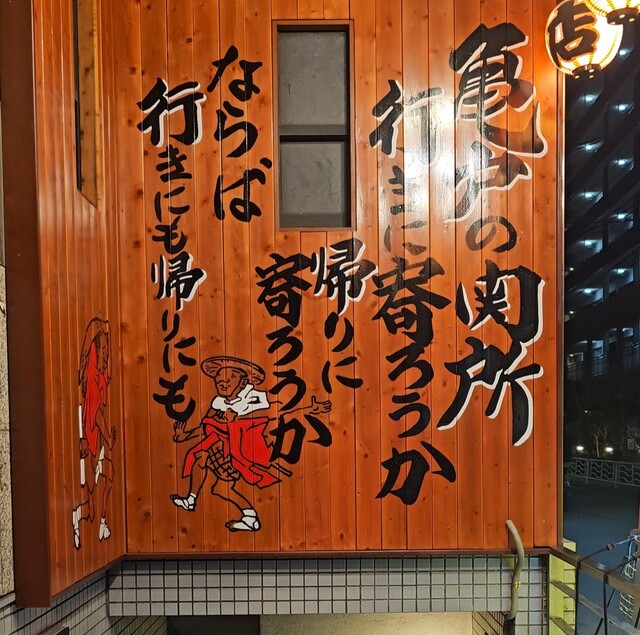 亀戸の関所
行きに寄ろうか
帰りに
寄ろうか
ならば
行きにも帰りにも
店